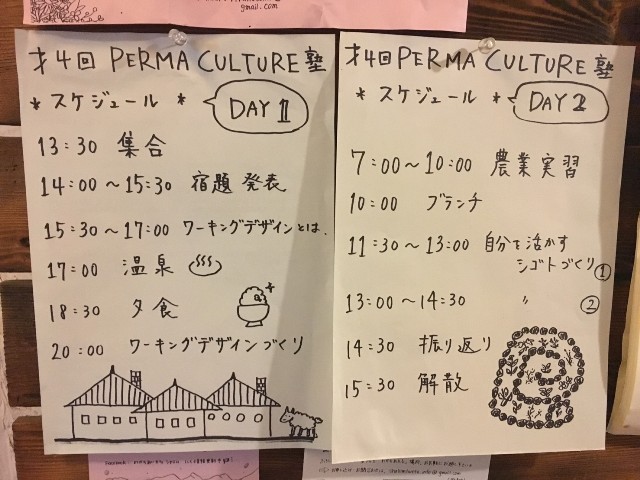 gmail.com
才4回 PERMA CULTURE 塾
* スケジュール * DAY 1
13:30 集合
14:00〜15:30 宿題発表
15:30〜17:00 ワーキングデザインとは.
17:00 温泉
18:30 夕食
20:00 ワーキングデザインづくり
才4回 PERMA CULTURE 塾
* スケジュール * DAY 2
7:00〜10:00 農業実習
10:00 ブランチ
11:30〜13:00 自分を活かす
シゴトづくり ①
13:00〜14:30 〃 ②
14:30 振り返り
15:30 解散